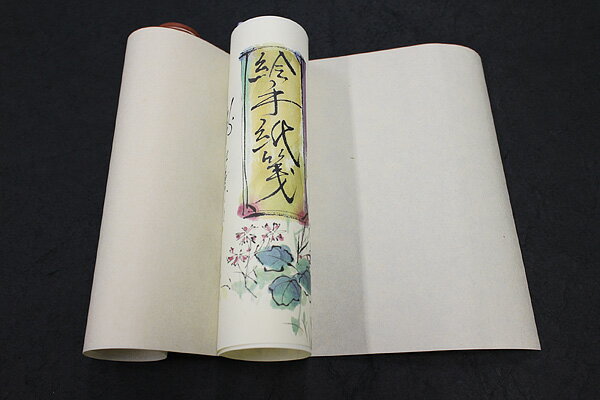 絵手紙箋